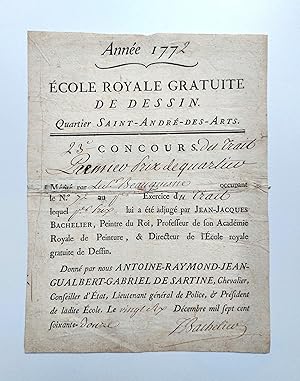 Année 1772
ÉCOLE ROYALE GRATUITE
DE DESSIN.
Quartier SAINT-ANDRÉ-DES-ARTS.
23e CONCOURS. du Trait
Premier Prix de quartier
par Beauquesne occupant
le N.° au Exercice du Trait
lequel Prix lui a été adjugé par JEAN-JACQUES
BACHELIER, Peintre du Roi, Professeur de son Académie
Royale de Peinture, & Directeur de l'École royale
gratuite de Dessin.
Donné par nous ANTOINE-RAYMOND-JEAN-
GUALBERT-GABRIEL DE SARTINE, Chevalier,
Conseiller d'État, Lieutenant général de Police, & Président
de ladite École. Le vingt Décembre mil sept cent
soixante-douze Bachelier